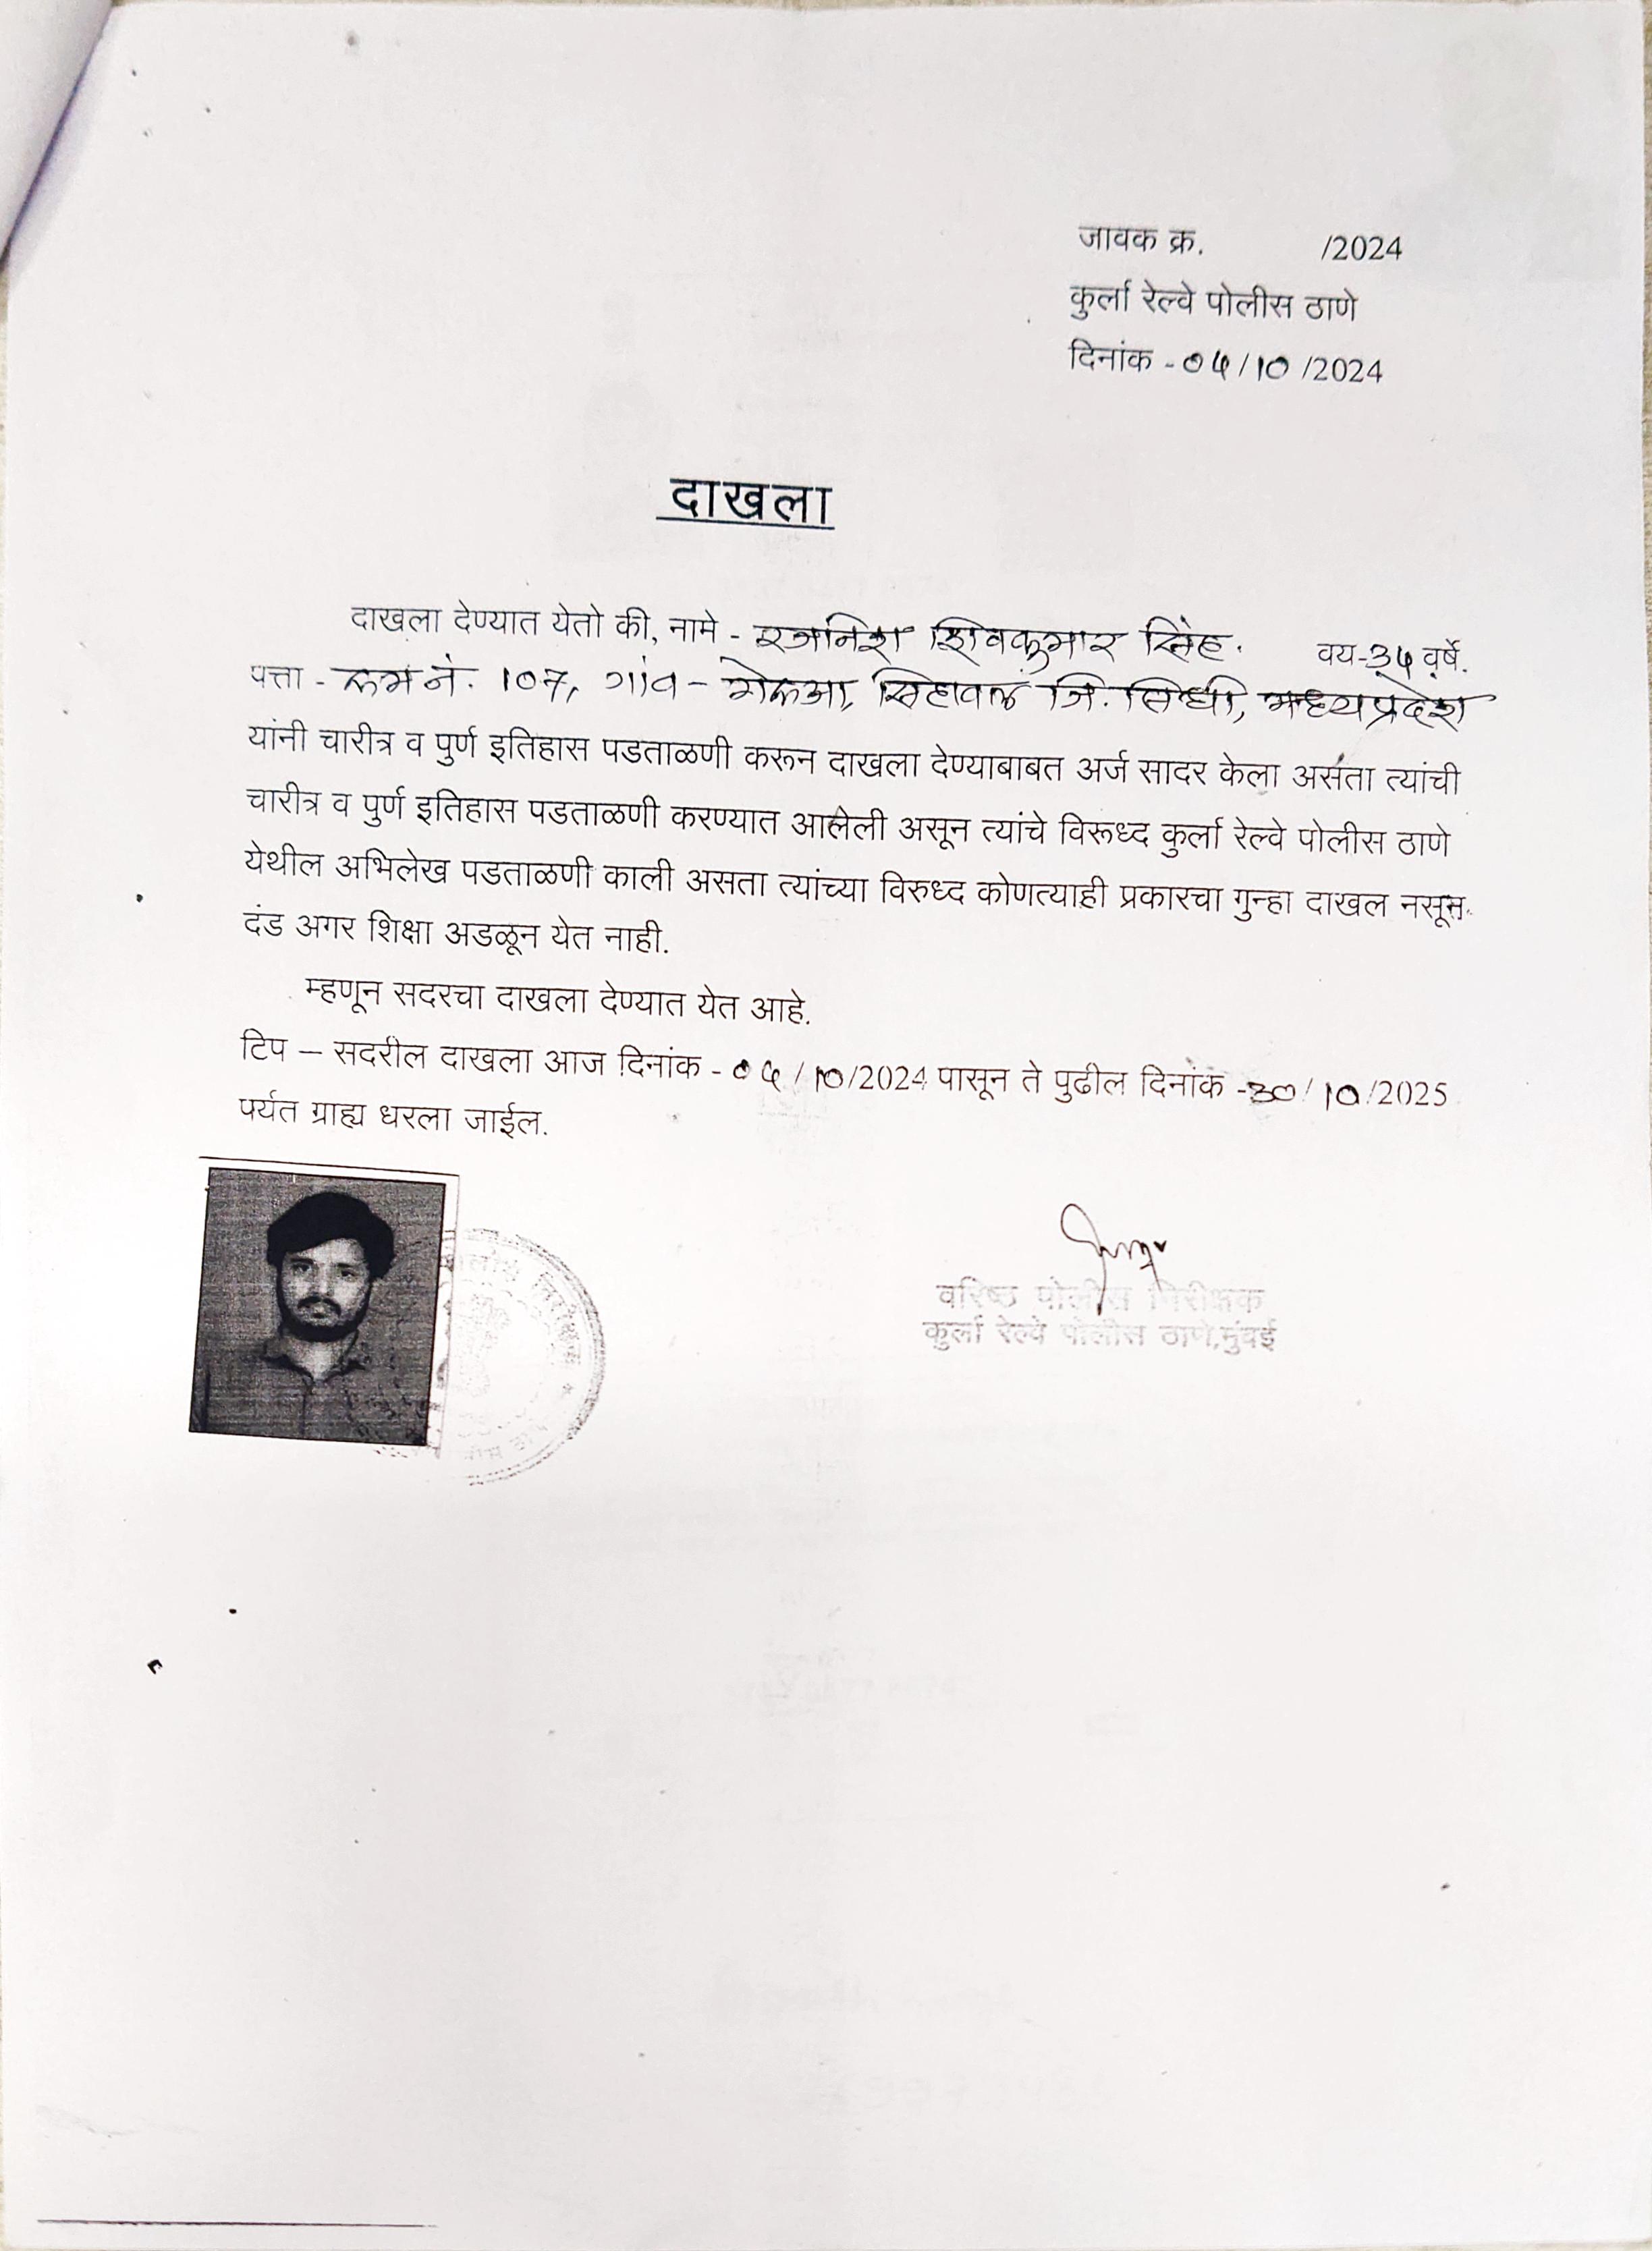 जावक क्र. /2024
कुर्ला रेल्वे पोलीस ठाणे
दिनांक - ०५/10 /2024
दाखला
दाखला देण्यात येतो की, नामे - रजनिश शिवकुमार सिंह. वय-३५ वर्षे.
पत्ता - रूम नं. 107, गांव - मेकआ, सिहावल जि. सिधी, मध्यप्रदेश
यांनी चारीत्र व पुर्ण इतिहास पडताळणी करून दाखला देण्याबाबत अर्ज सादर केला असता त्यांची
चारीत्र व पुर्ण इतिहास पडताळणी करण्यात आलेली असून त्यांचे विरूध्द कुर्ला रेल्वे पोलीस ठाणे
येथील अभिलेख पडताळणी काली असता त्यांच्या विरुध्द कोणत्याही प्रकारचा गुन्हा दाखल नसून
दंड अगर शिक्षा अडळून येत नाही.
म्हणून सदरचा दाखला देण्यात येत आहे.
टिप – सदरील दाखला आज दिनांक - ०५/10/2024 पासून ते पुढील दिनांक -३०/10/2025
पर्यत ग्राह्य धरला जाईल.
वरिष्ठ पोलीस निरीक्षक
कुर्ला रेल्वे पोलीस ठाणे,मुंबई